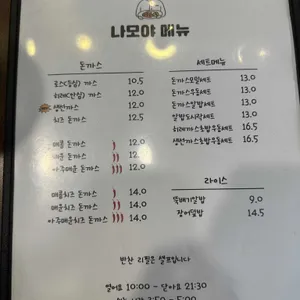 나모야 메뉴
돈까스
로스(등심) 까스 10.5
히레(안심) 까스 12.0
생선까스 12.0
치즈 돈까스 12.5
매콤 돈까스 12.0
매운 돈까스 12.0
아주매운 돈까스 12.0
매콤치즈 돈까스 14.0
매운치즈 돈까스 14.0
아주매운치즈 돈까스 14.0
세트메뉴
돈까스모밀세트 13.0
돈까스우동세트 13.0
돈까스알밥세트 13.0
알밥도시락세트 13.0
히레까스초밥우동세트 16.5
생선까스초밥우동세트 16.5
라이스
뚝배기알밥 9.0
장어덮밥 14.5
반찬 리필은 셀프입니다
열어요 10:00 - 닫아요 21:30